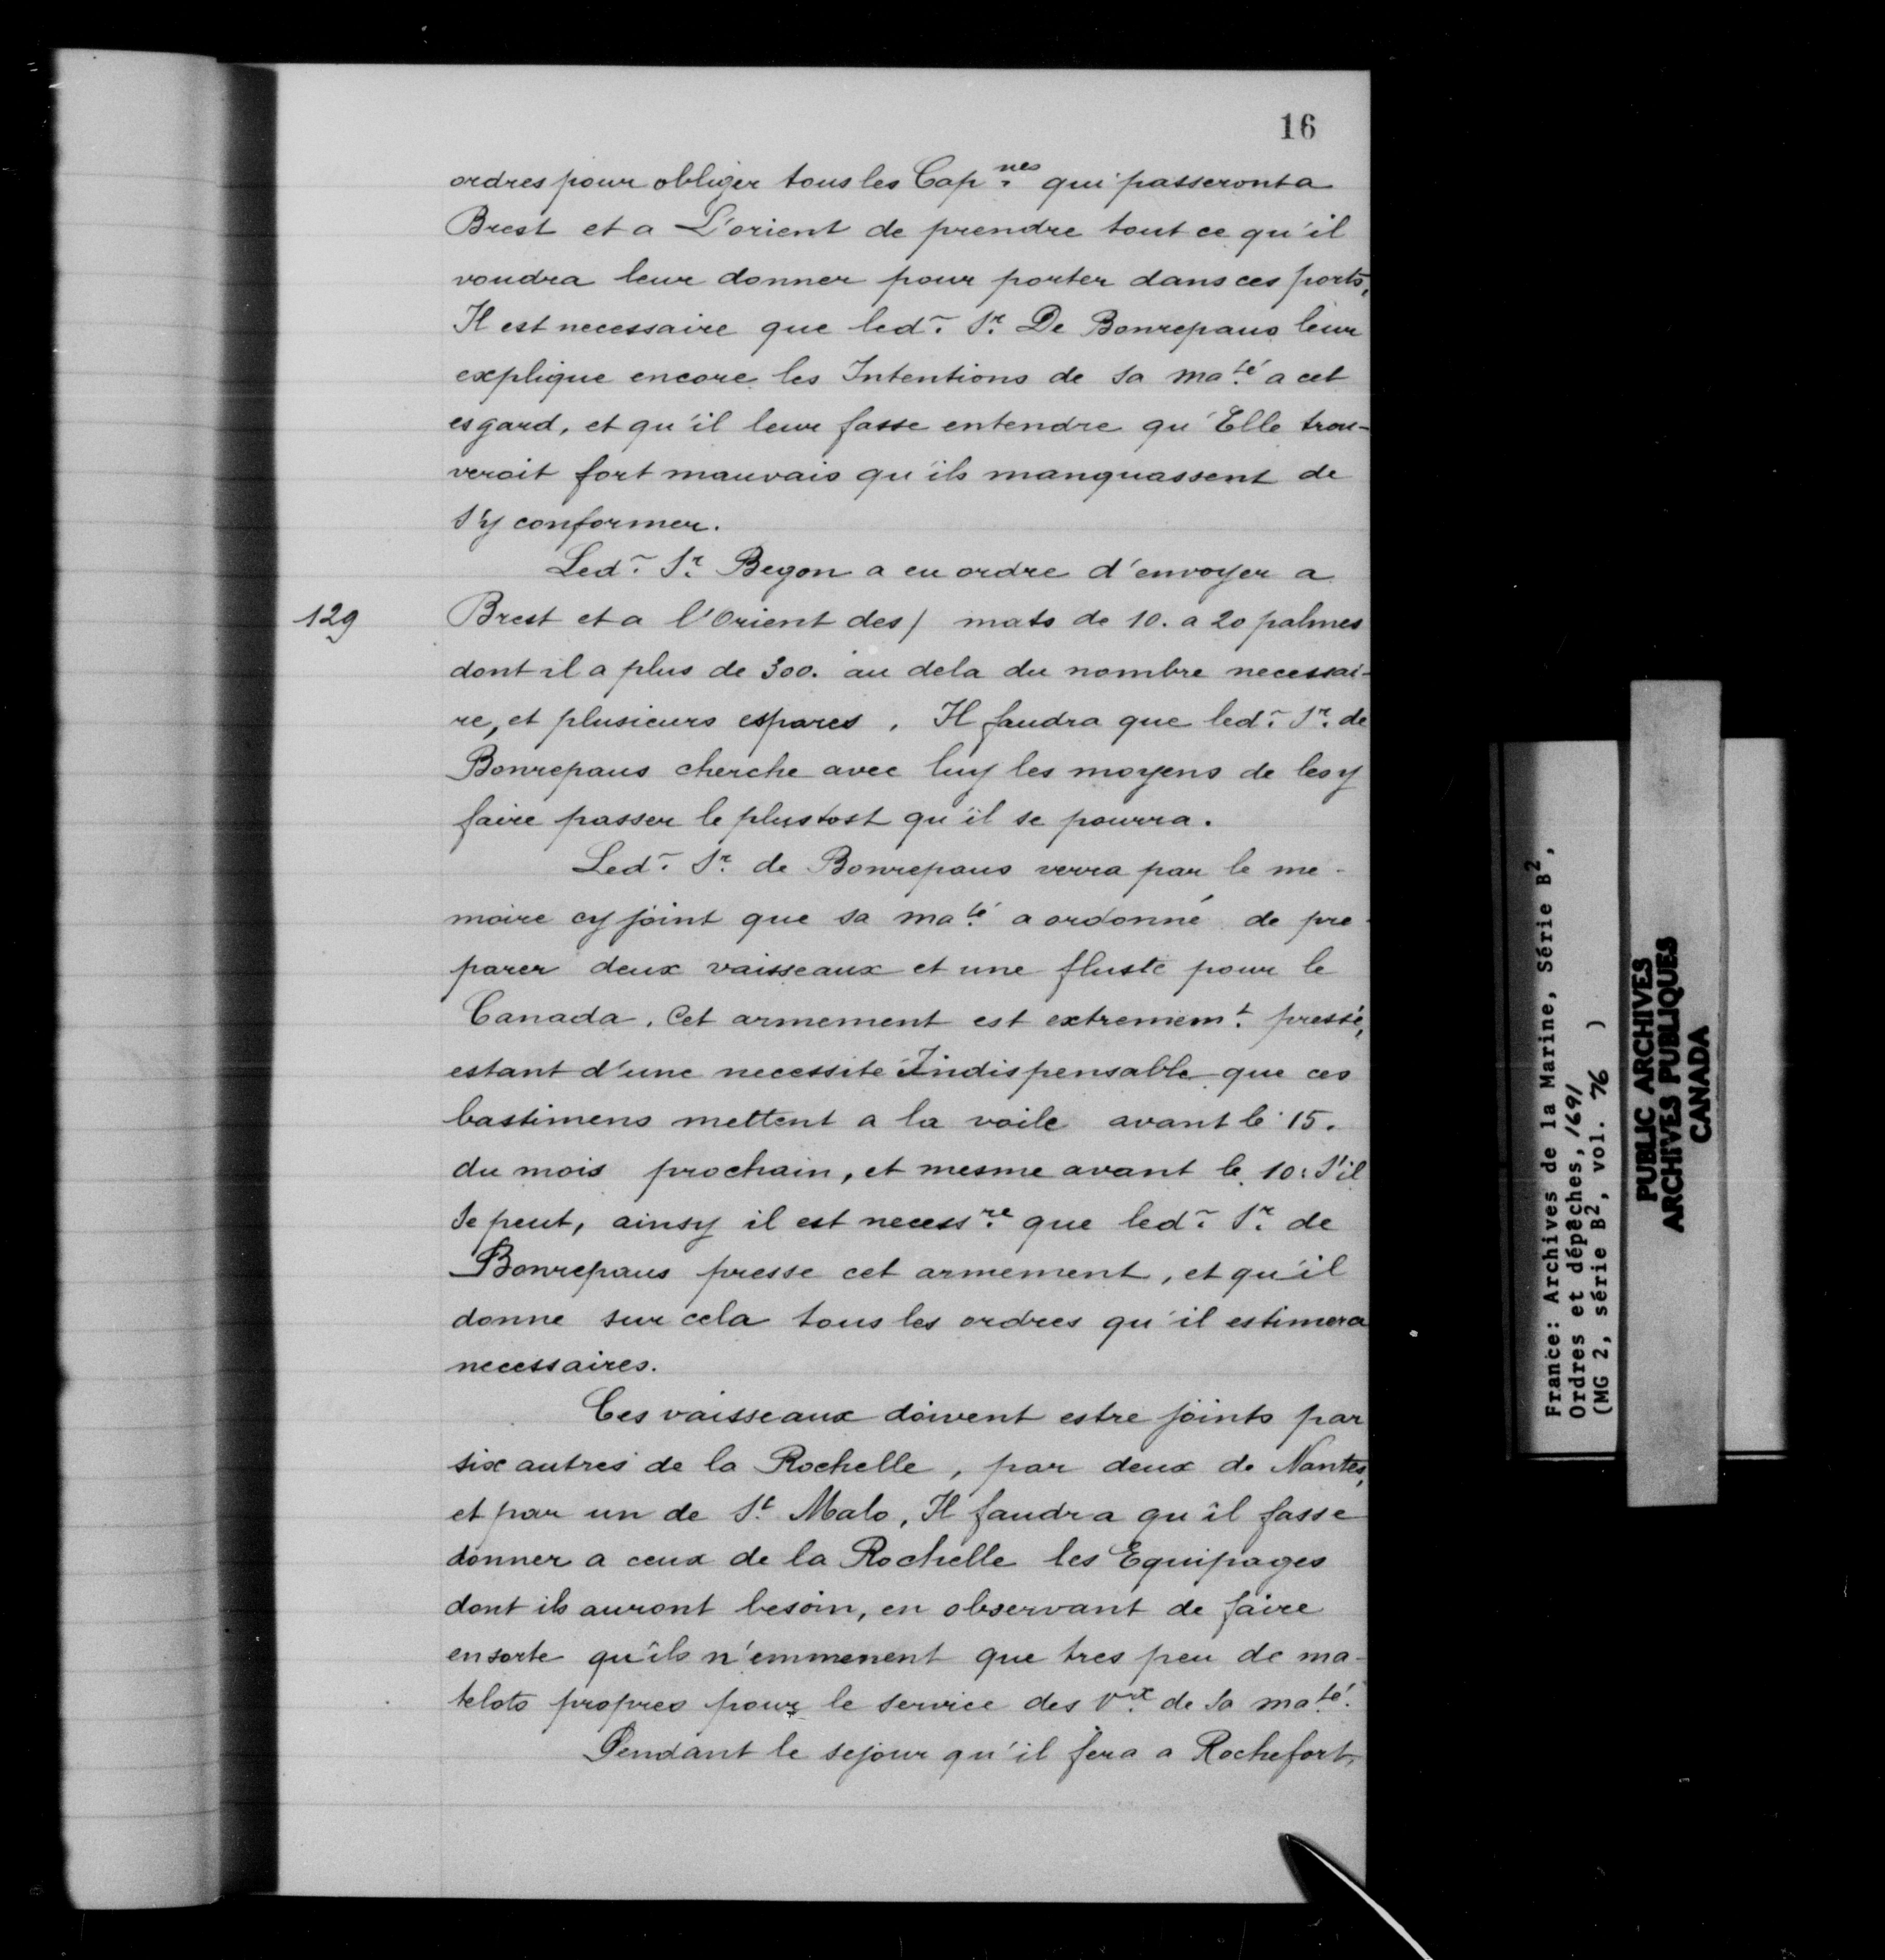 16
ordres pour obliger tous les Cap.nes qui passeront a
Brest et a L'orient de prendre tout ce qu'il
voudra leur donner pour porter dans ces ports,
Il est necessaire que led. Sr. De Bonrepaus leur
explique encore les Intentions de Sa ma.té a cet
esgard, et qu'il leur fasse entendre qu'Elle trou-
veroit fort mauvais qu'ils manquassent de
S'y conformer.
Led. Sr. Begon a eu ordre d'envoyer a
129 Brest et a l'Orient des / mats de 10. a 20 palmes
dont il a plus de 300. au dela du nombre necessai-
re, et plusieurs espares. Il faudra que led. Sr. de
Bonrepaus cherche avec luy les moyens de les y
faire passer le plustost qu'il se pourra.
Led. Sr. de Bonrepaus verra par le me-
moire cy joint que sa ma.té a ordonné de pre-
parer deux vaisseaux et une fluste pour le
Canada. Cet armement est extremem.t pressé,
estant d'une necessité Indispensable que ces
bastimens mettent a la voile avant le 15.
du mois prochain, et mesme avant le 10: S'il
Se peut, ainsy il est necess.re que led. Sr. de
Bonrepaus presse cet armement, et qu'il
donne sur cela tous les ordres qu'il estimera
necessaires.
Ces vaisseaux doivent estre joints par
six autres de la Rochelle, par deux de Nantes,
et par un de St. Malo, Il faudra qu'il fasse
donner a ceux de la Rochelle les Equipages
dont ils auront besoin, en observant de faire
ensorte qu'ils n'emmenent que tres peu de ma-
telots propres pour le service des V.x de Sa ma.té.
Pendant le sejour qu'il fera a Rochefort,
France: Archives de la Marine, Série B2,
Ordres et dépêches, 1691
(MG 2, série B2, vol. 76 )
PUBLIC ARCHIVES
ARCHIVES PUBLIQUES
CANADA